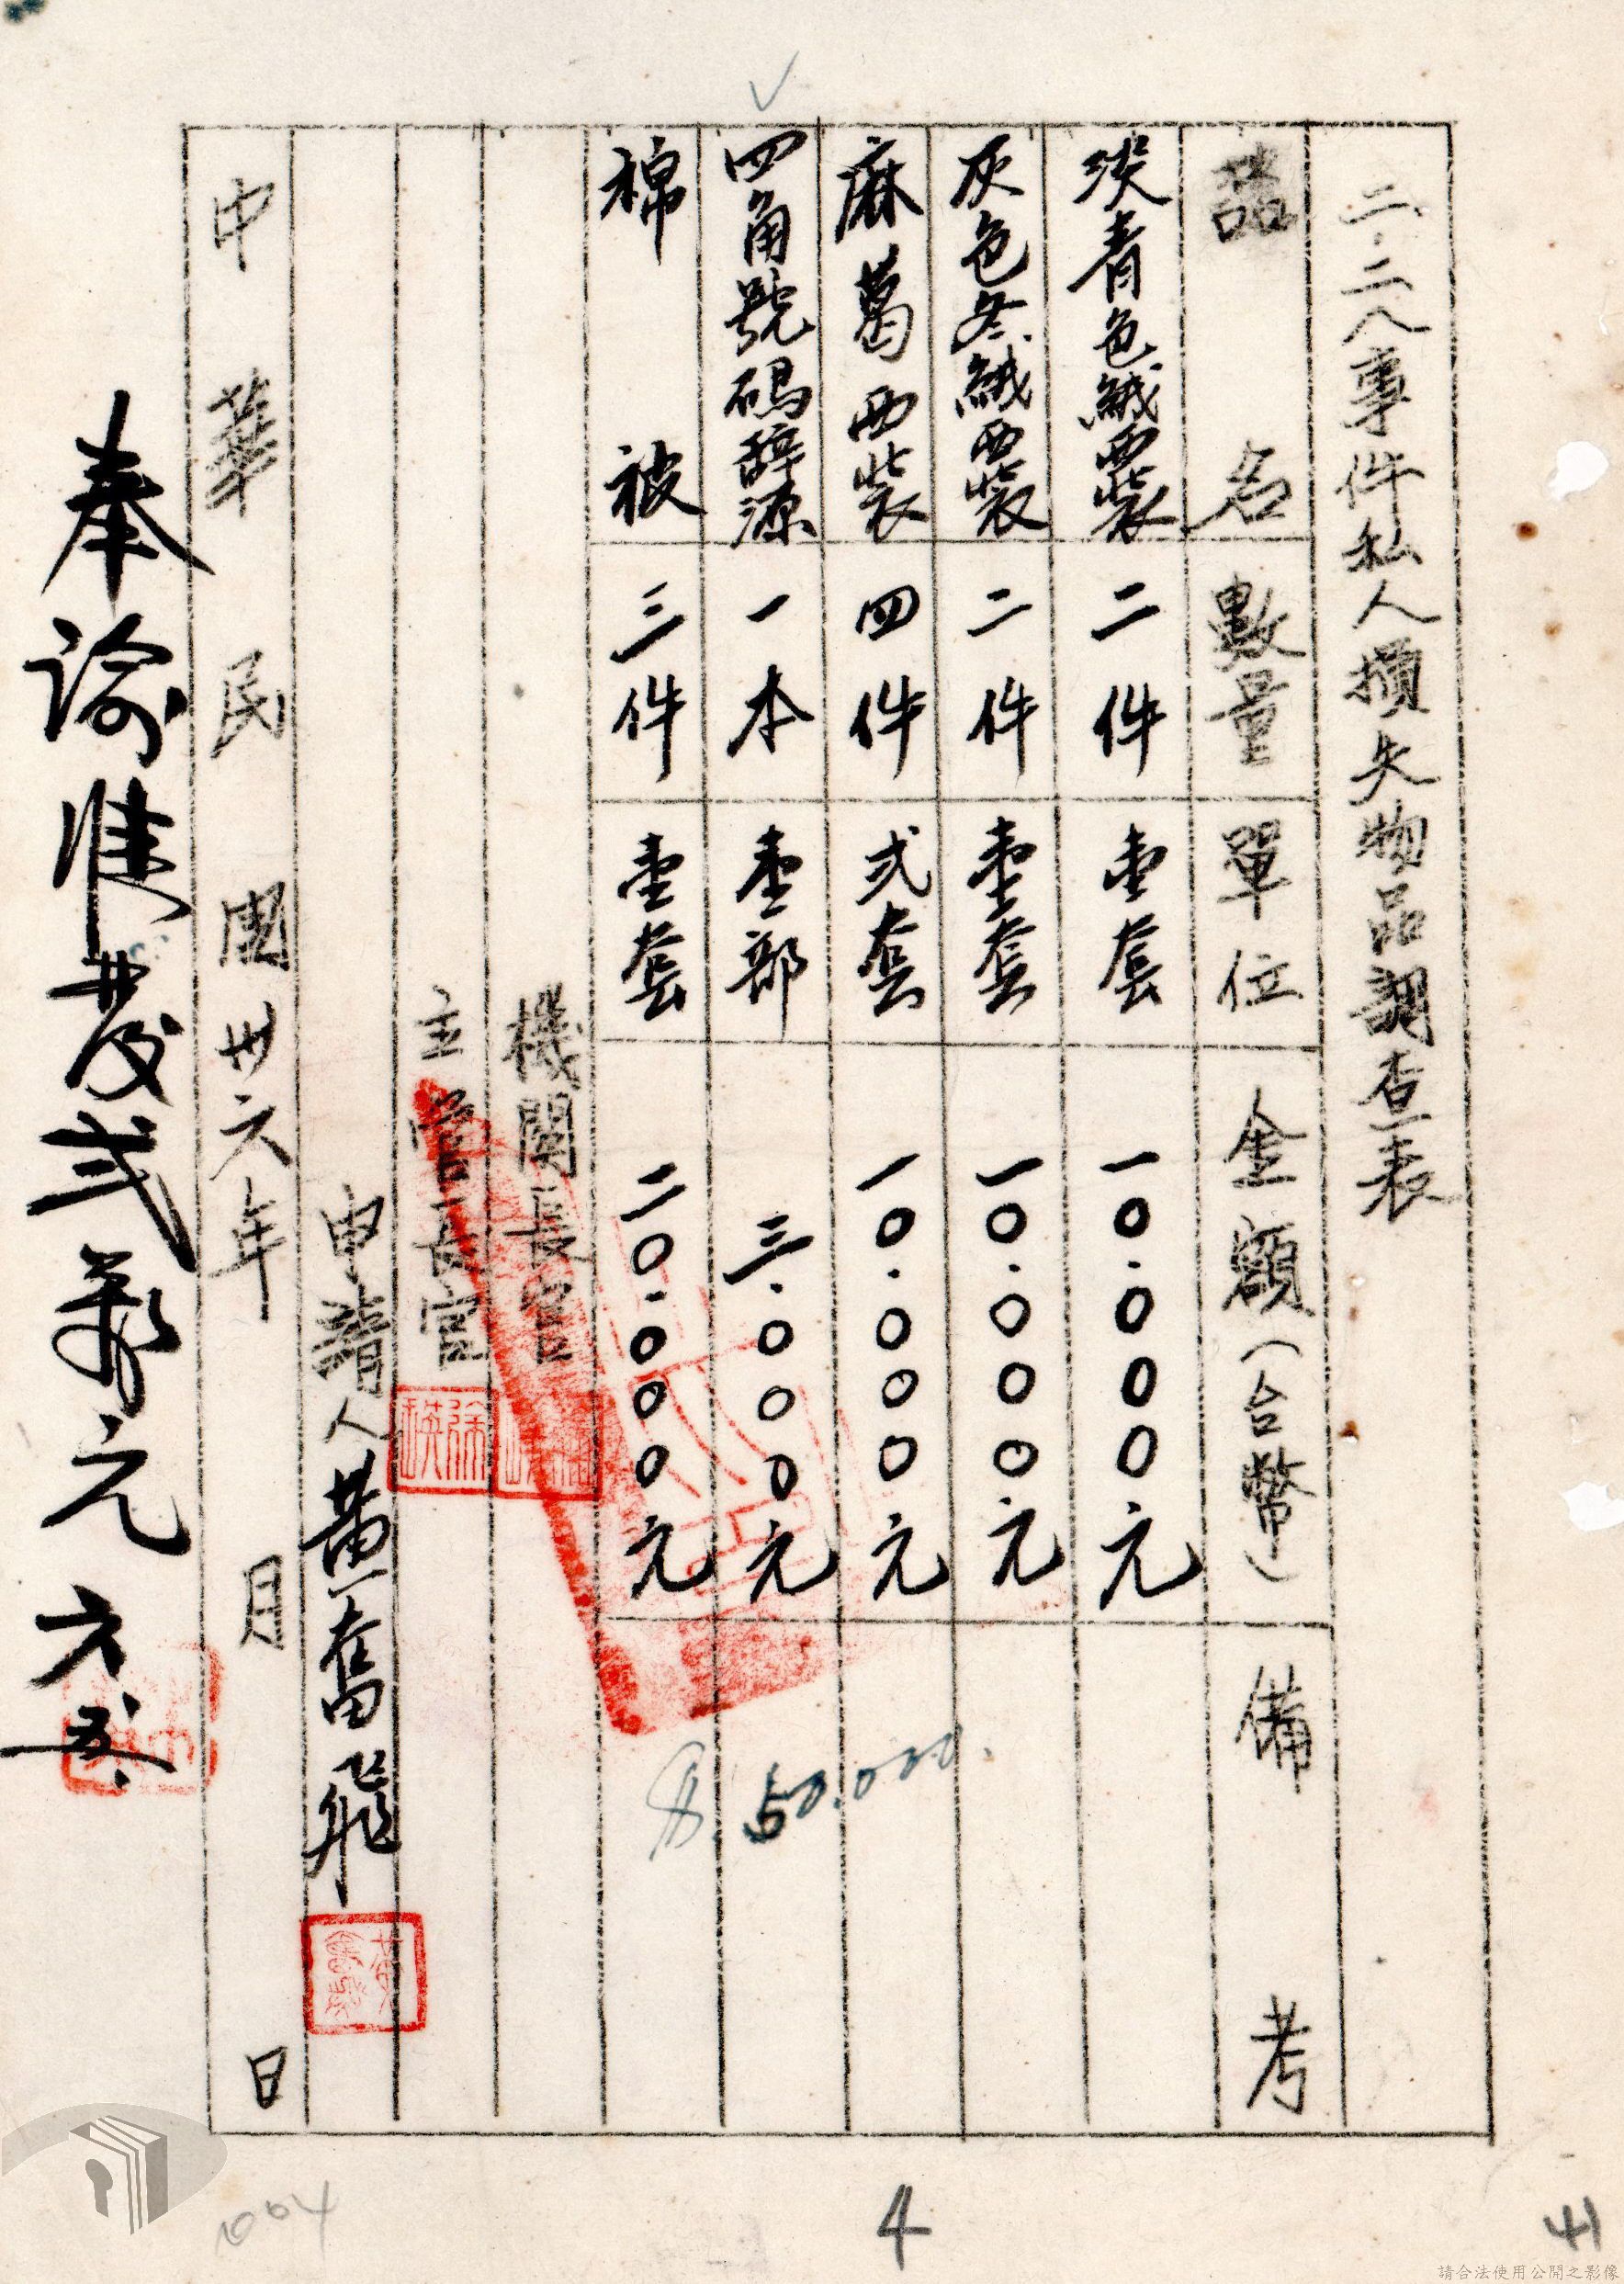 二.二八事件私人損失物品調查表
品名 數量 單位 金額(台幣) 備考
淡青色絨西裝 二件 壹套 一〇.〇〇〇元
灰色冬絨西裝 二件 壹套 一〇.〇〇〇元
麻葛西裝 四件 弍套 一〇.〇〇〇元
四角號碼辭源 一本 壹部 三.〇〇〇元
棉被 三件 壹套 二〇.〇〇〇元
50.000.
機關長官
主管長官
申請人黃奮飛
中華民國卅六年 月 日
奉諭准發弍萬元 六.五.
004
4
41
請合法使用公開之影像